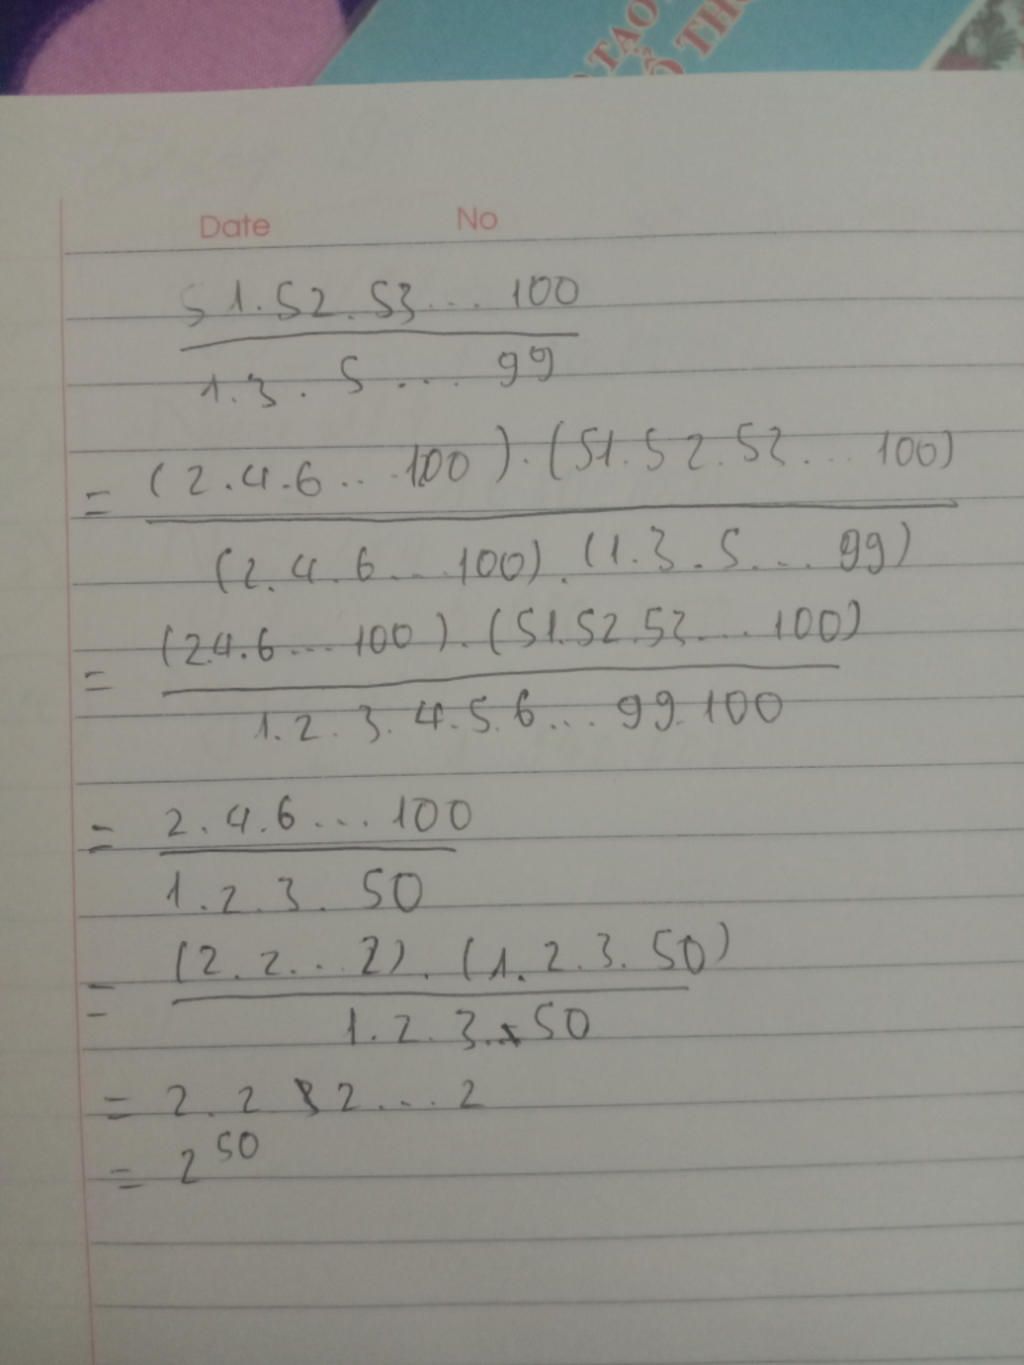 TẠO
Ổ TH
Date No
51.52.53... 100
1.3.5... 99
= (2.4.6... 100).(51.52.52... 100)
(2.4.6... 100).(1.3.5... 99)
= (2.4.6... 100).(51.52.53... 100)
1.2.3.4.5.6... 99.100
= 2.4.6... 100
1.2.3.50
= (2.2...2).(1.2.3.50)
1.2.3.50
= 2.2 2...2
= 2^50